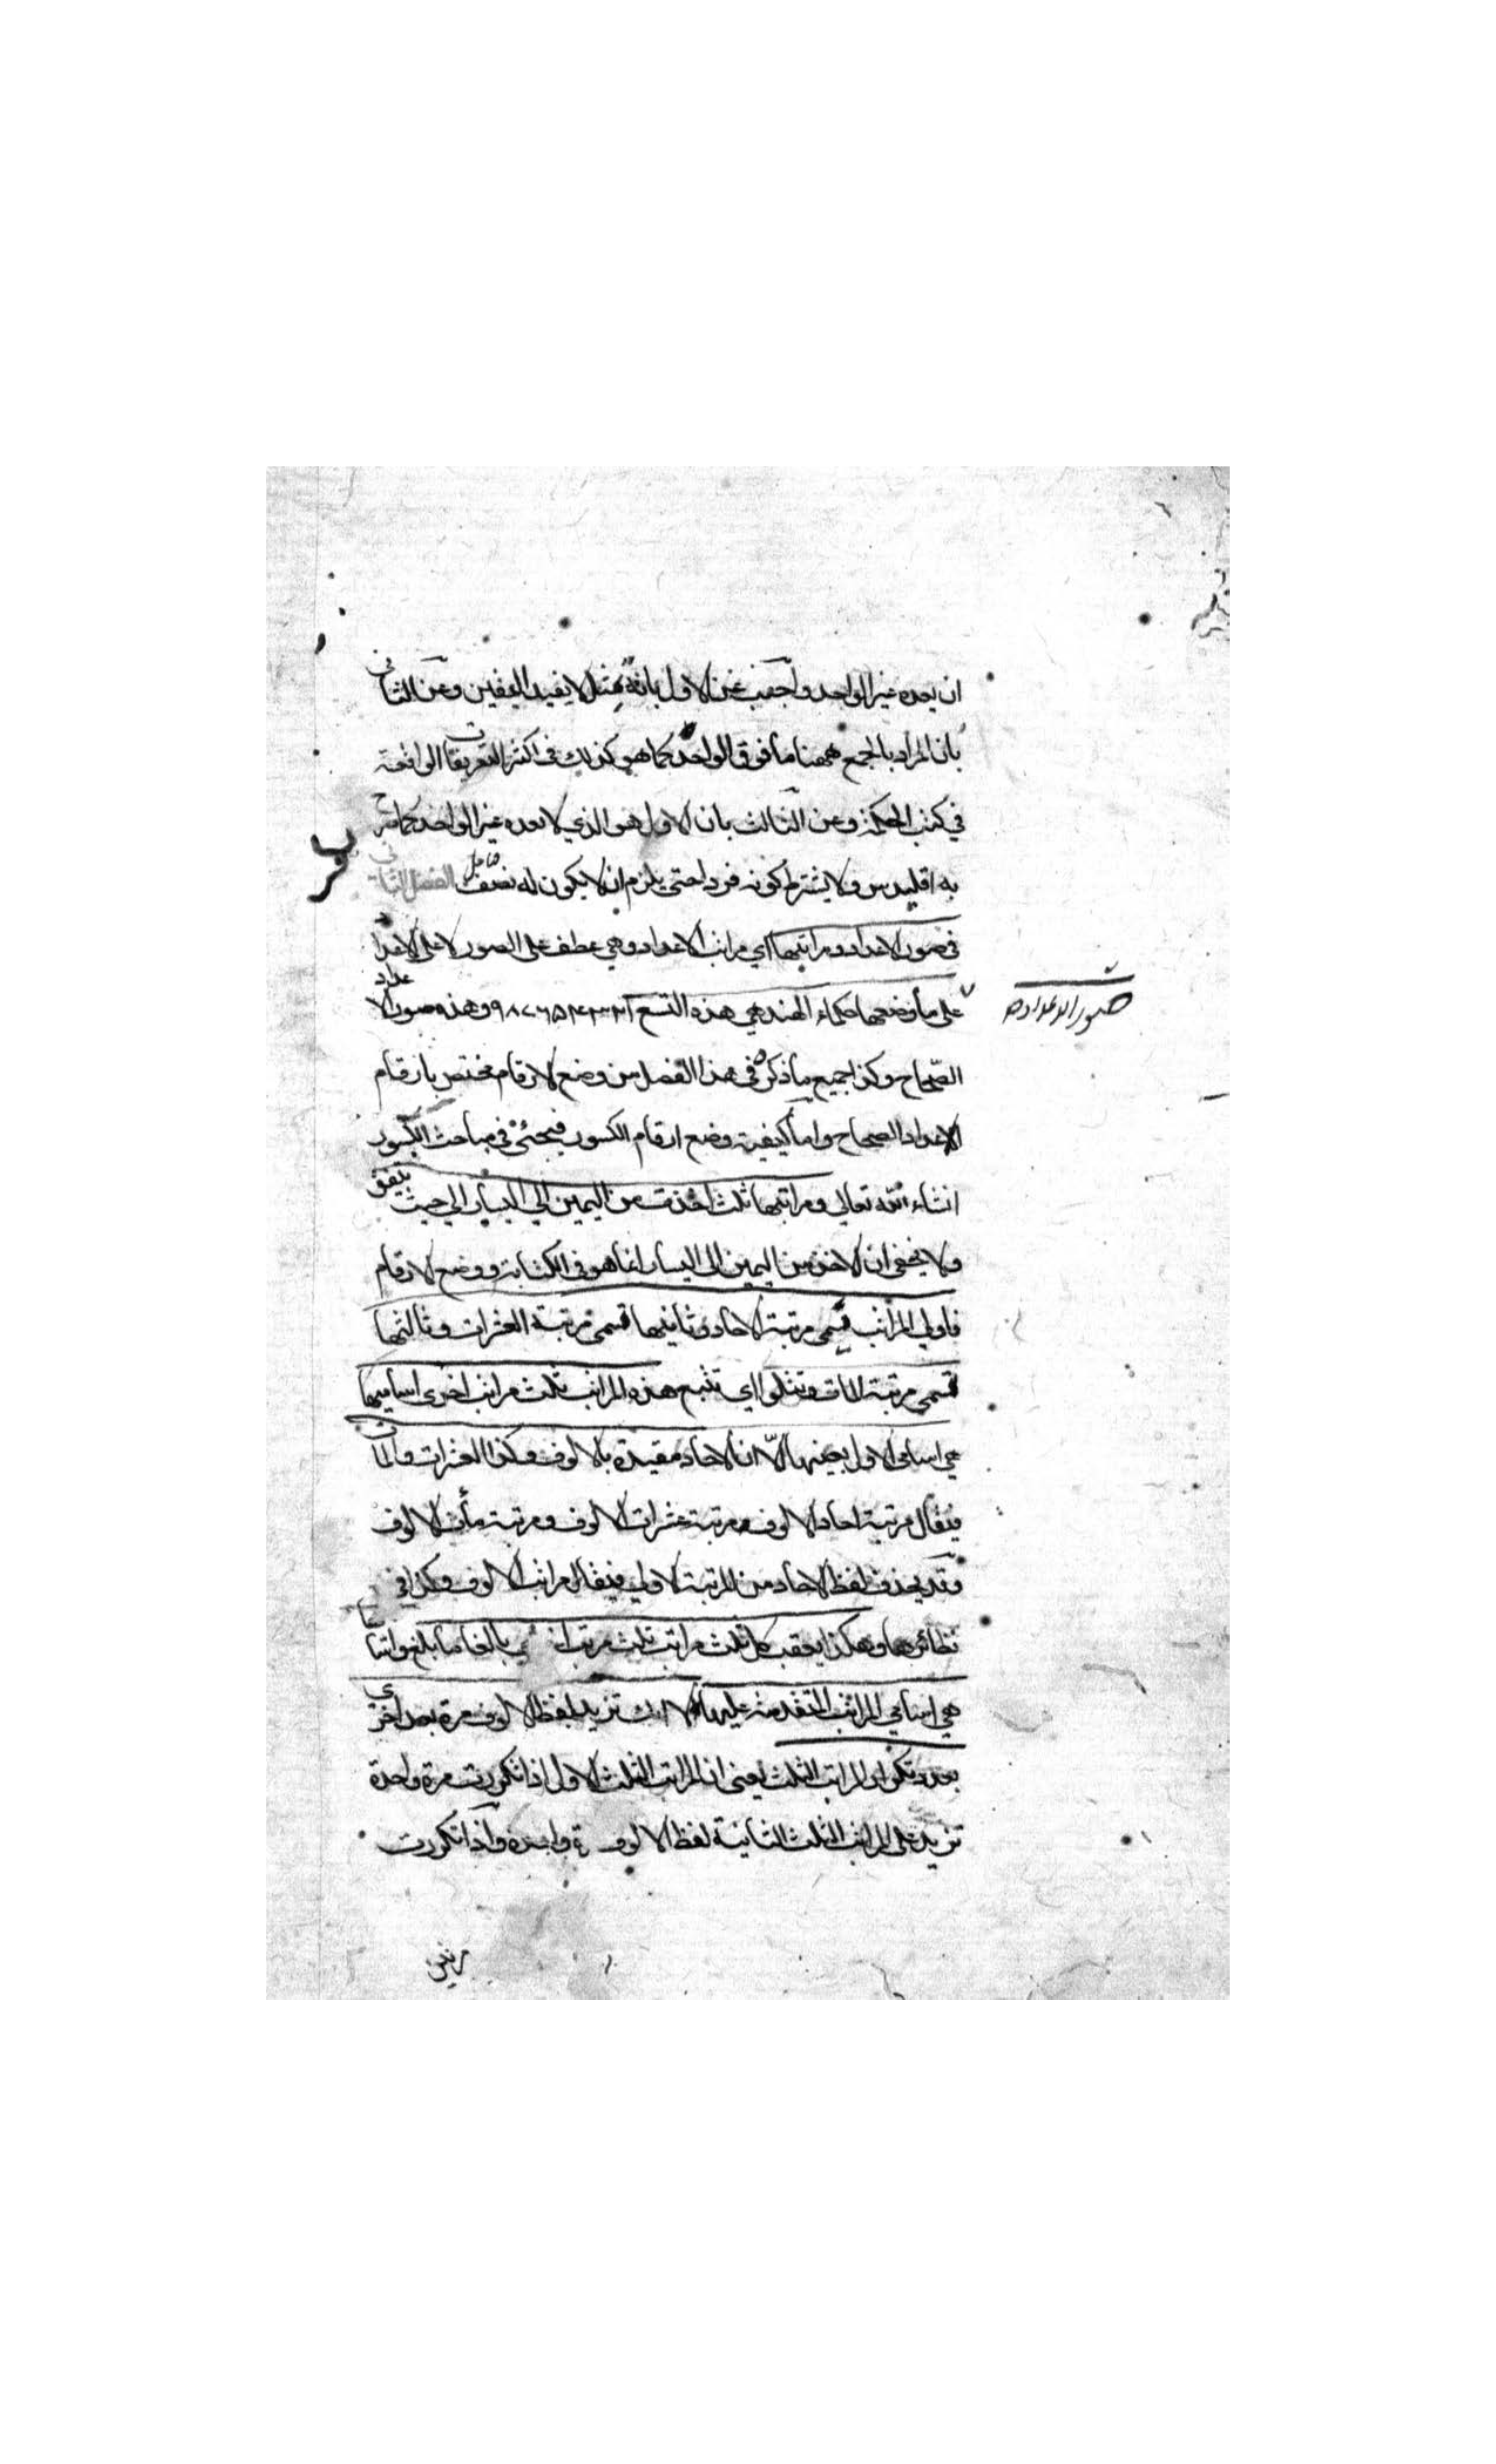 ان يعده غير الواحد واجيب عن الاول بانه تمثيل لا يفيد اليقين وعن الثاني
بان المراد بالجمع ههنا ما فوق الواحد كما هو كذلك فى اكثر التعريفات الواقعة
في كتب الحكمة وعن الثالث بان الاول هو الذي لا يعده غير الواحد كما صرح
به اقليدس ولا يشترط كونه فردا حتى يلزم ان لا يكون له نصف الفصل الثاني
فى صور الاعداد ومراتبها اي مراتب الاعداد وهي عطف على الصور لا على الاعداد
صور الاعداد
على ما وضعها حكماء الهند هي هذه التسع ١ ٢ ٣ ۴ ۵ ٦ ٧ ٨ ٩ وهذه صور الاعداد
الصحاح وكذا جميع ما ذكره فى هذا الفصل من وضع الارقام مختص بارقام
الاعداد الصحاح واما كيفية وضع ارقام الكسور فيجئ في مباحث الكسور
انشاء الله تعالى ومراتبها ثلث اخذت من اليمين الي اليسار الي حيث يتفق
ولا يخفى ان الاخذ من اليمين الى اليسار انما هو فى الكتابة ووضع الارقام
فاولي المراتب تسمى مرتبة الاحاد وثانيها تسمى مرتبة العشرات وثالثها
تسمى مرتبة المات وتتلو اي تتبع هذه المراتب ثلث مراتب اخرى اساميها
هي اسامى الاول بعينها الّا ان الاحاد مقيدة بالالوف وكذا العشرات والمات
فيقال مرتبة احاد الالوف ومرتبة عشرات الالوف ومرتبة مأت الالوف
وقد يحذف لفظ الاحاد من المرتبة الاولي فيقال مراتب الالوف وكذا في
نظائرها وهكذا يعقب كل ثلث مراتب ثلث مرتب بالغا ما بلغ
هي اسامي المراتب المتقدمة عليها الا انك تزيد لفظ الالوف مرة بعد اخرى
بعدد تكرار المراتب الثلث يعنى ان المراتب الثلث الاول اذا تكررت مرة واحدة
تزيد على المراتب الثلث الثانية لفظ الالوف واحدة واذا تكررت
مرتين